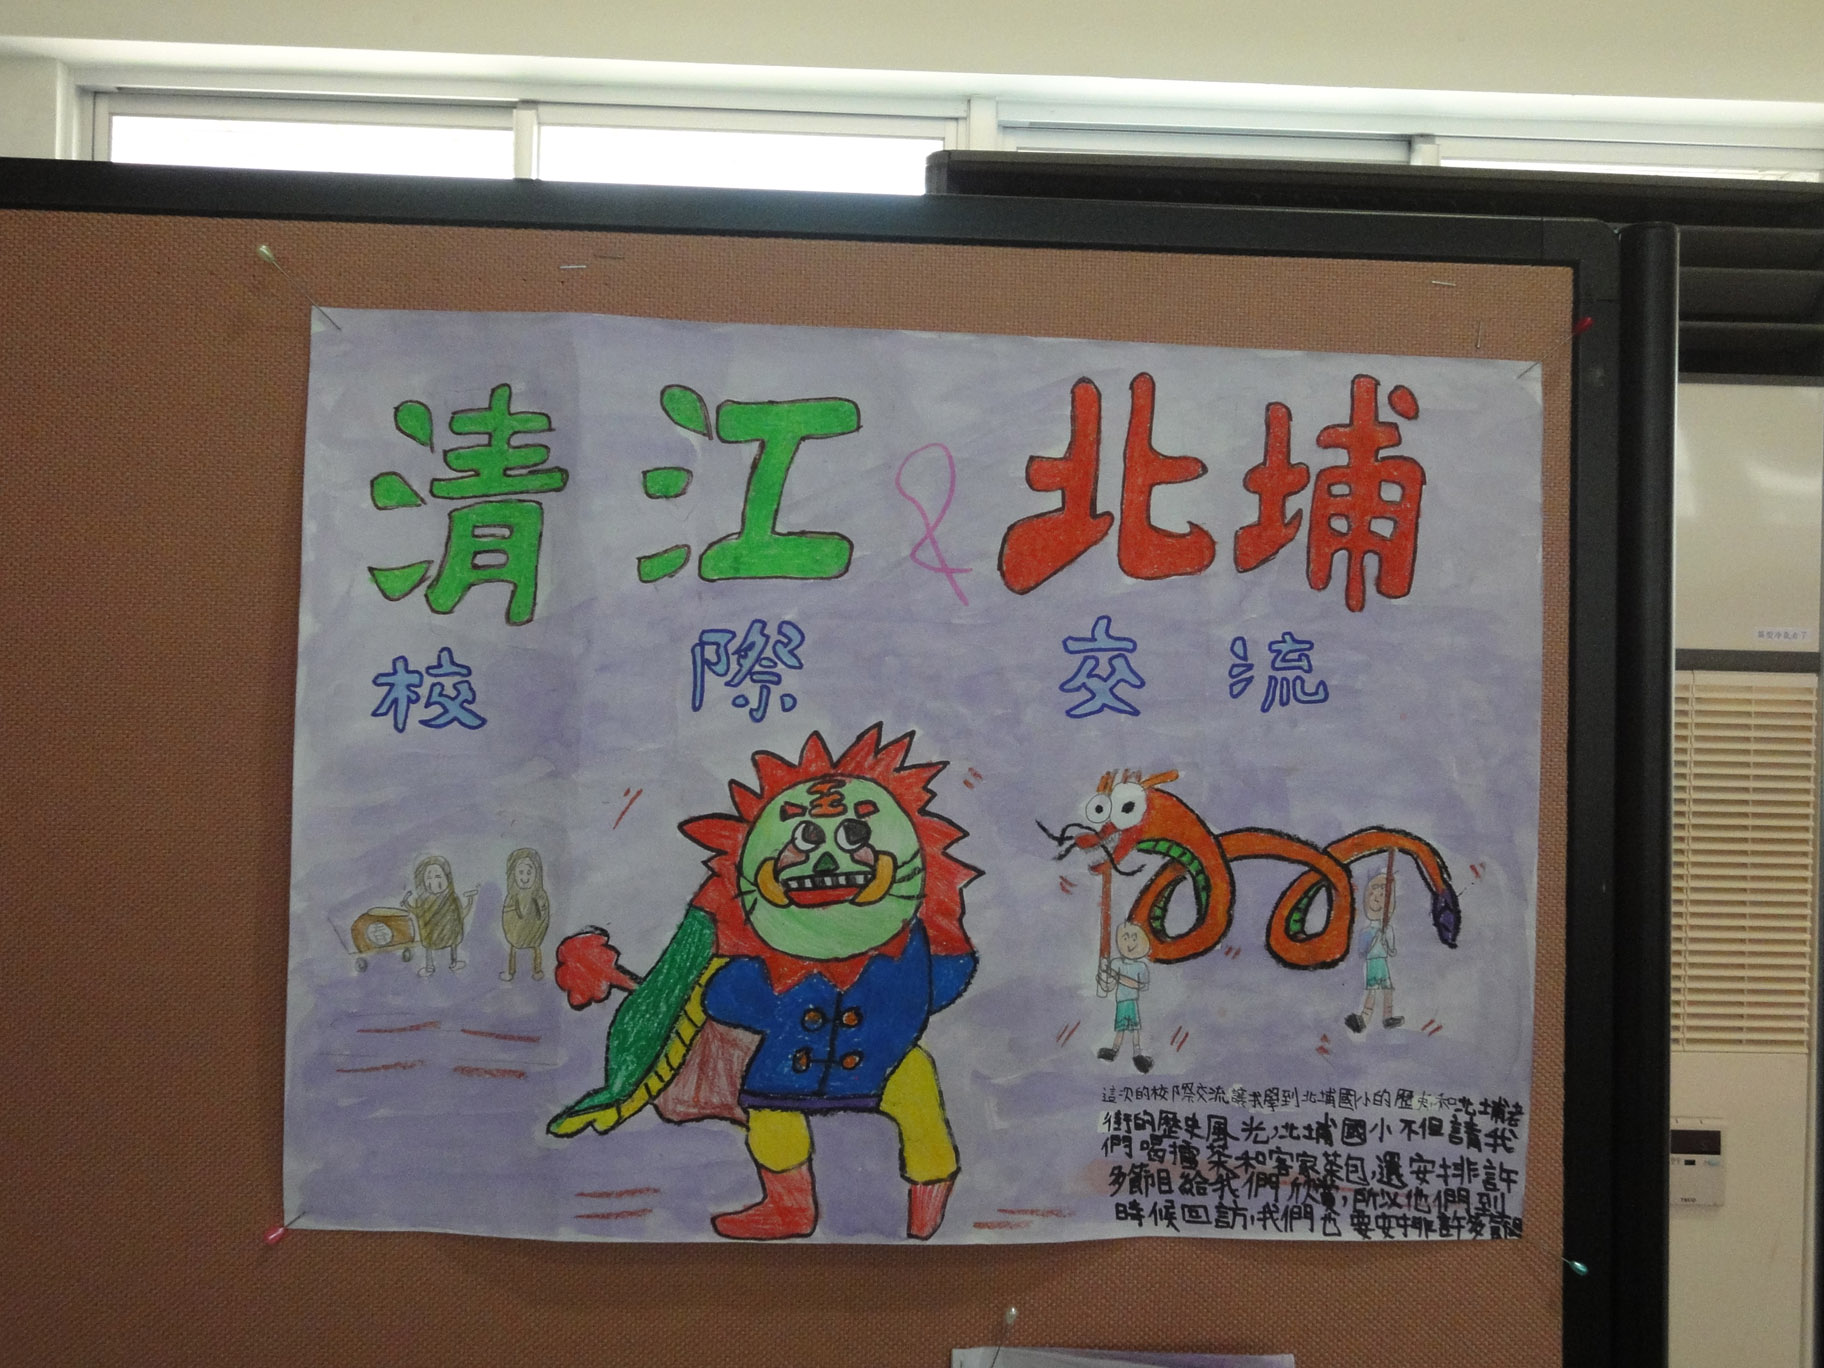 清江&北埔
校際交流
王
這次的校際交流讓我學到北埔國小的歷史和北埔老
街的歷史風光,北埔國小不但請我
們喝擂茶和客家茶包,還安排許
多節目給我們欣賞,所以他們到
時候回訪,我們也要安排許多節目